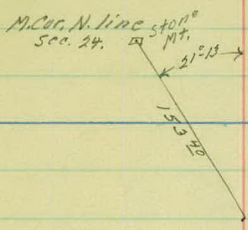 M.Cor. N. line
Sec. 24.
stone
Mt.
21°13
153 40